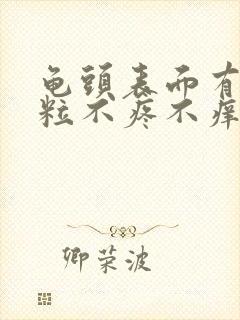 龟頭表面有
粒不疼不痒
卿荣波